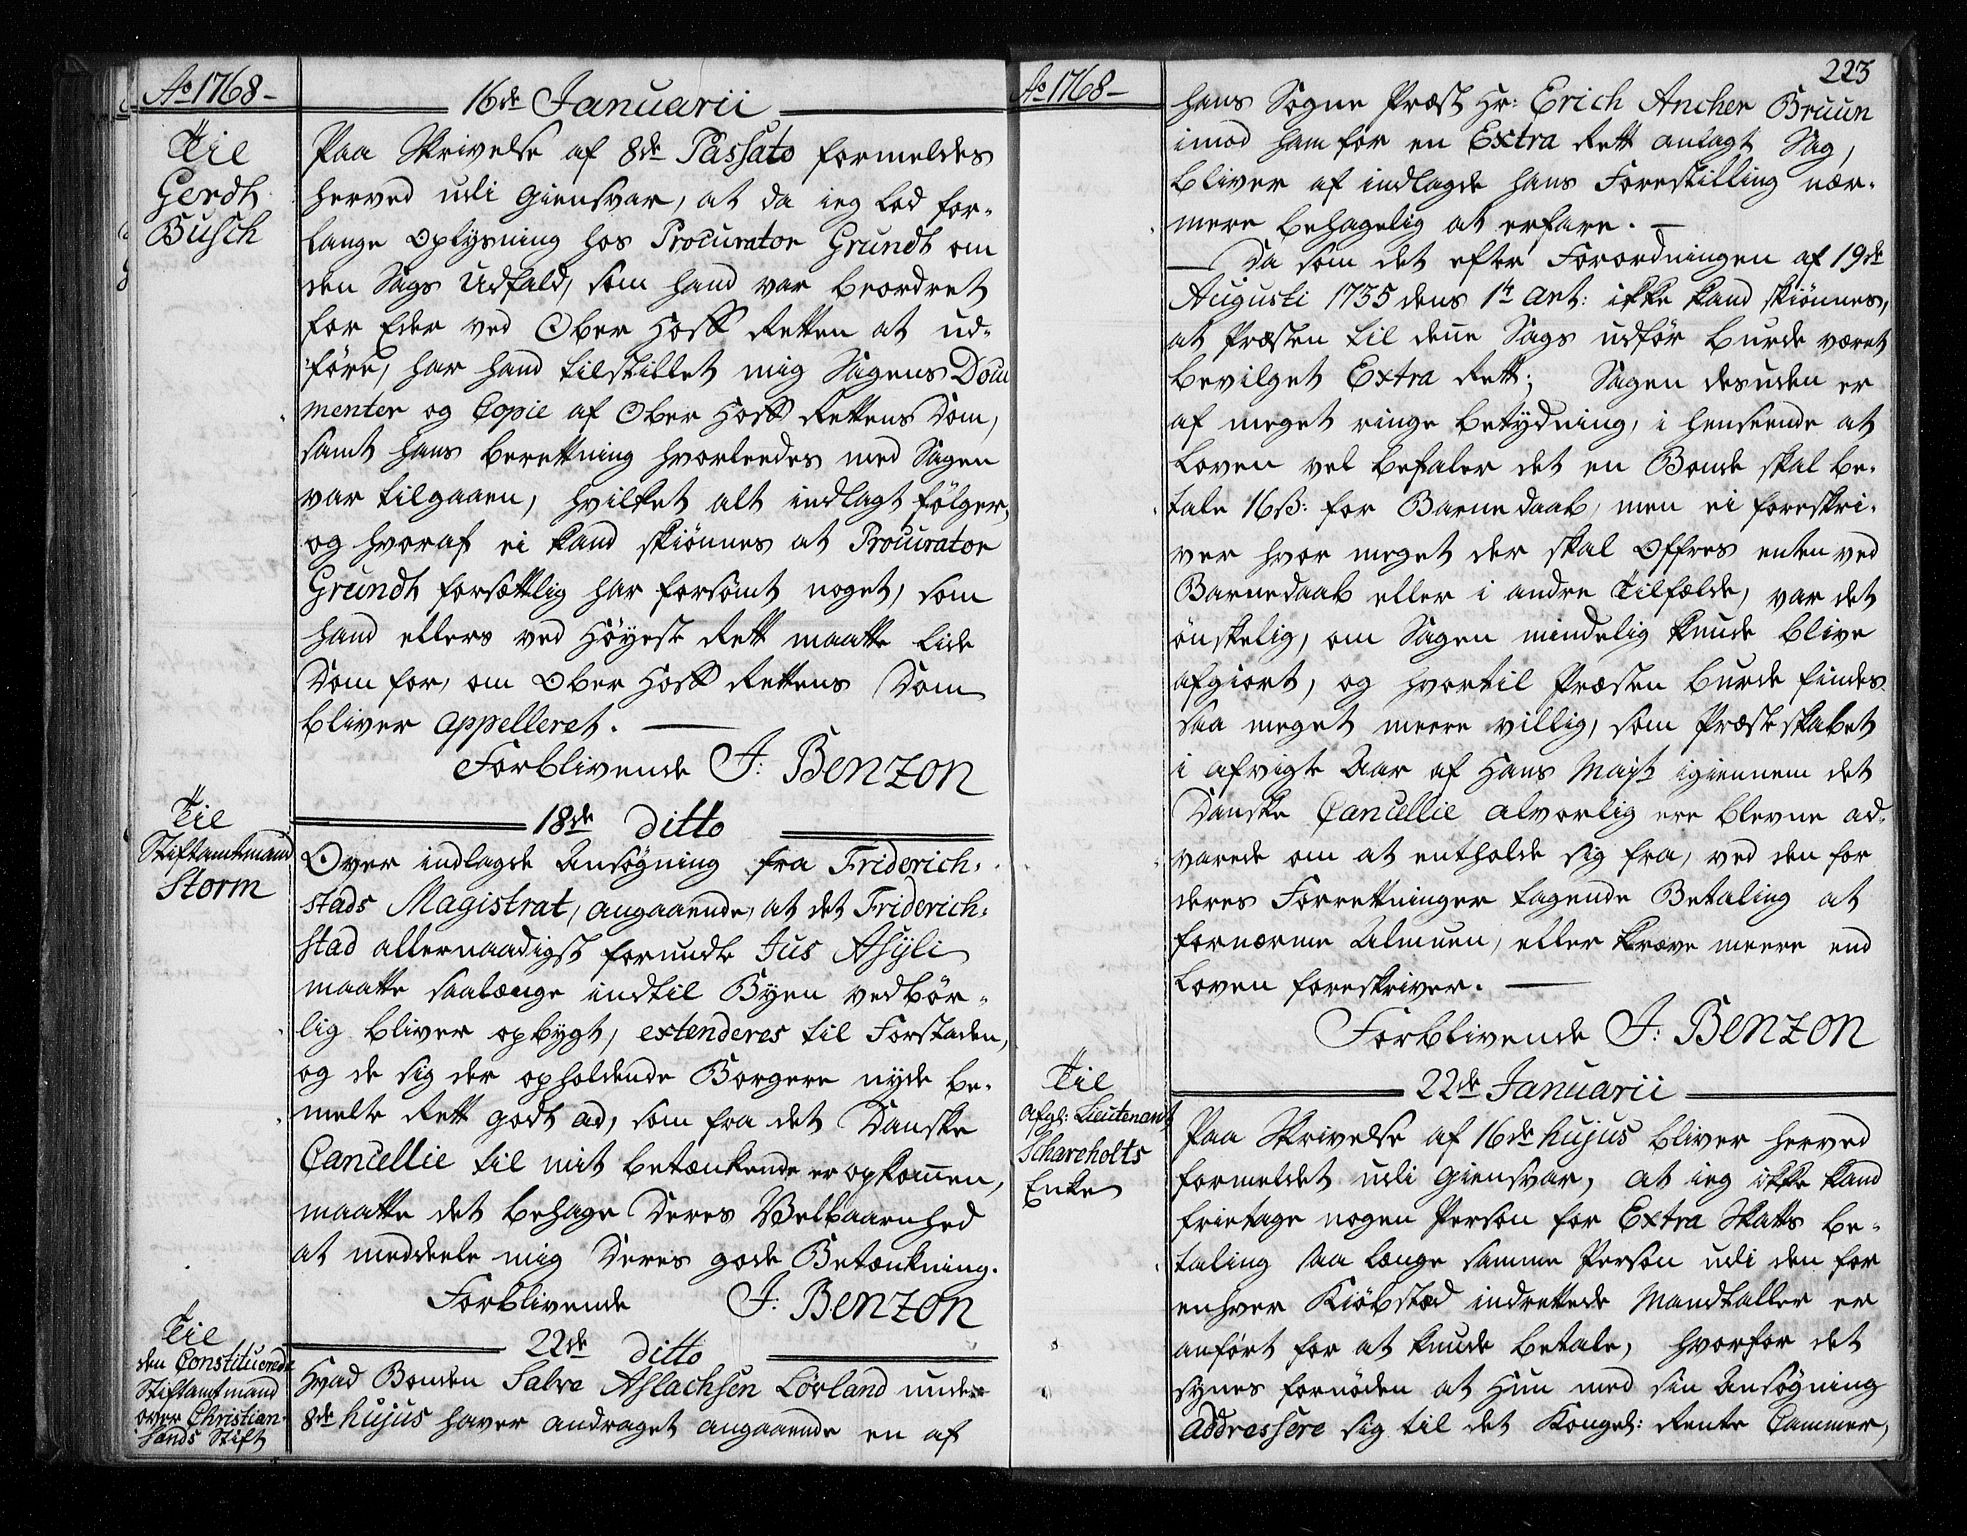 Ao 1768 –
16de Januarii
Til
Gerdt
Busch
Paa Skrivelse af 8de Passato formeldes
herved udi giensvar, at da ieg lod for-
lange Oplysning hos Procurator Grundt om
den Sags Udfald, som hand var beordret
for Eder ved Ober Hoff Retten at ud-
føre, har hand tilstillet mig Sagens Docu
menter og Copie af Ober Hoff Rettens Dom,
samt hans berettning hvorleedes med Sagen
var tilgaaen, hvilket alt indlagt følger,
og hvoraf ei kand skiønnes at Procurator
Grundt forsættlig har forsømt noget, som
hand ellers ved Høyeste Rett maatte lide
Dom for, om Ober Hoff Rettens Dom
bliver appelleret. —
Forblivende J: Benzon
18de ditto
Til
Stiftamtmand
Storm
Over indlagde Ansøgning fra Friderich-
stads Magistrat, angaaende, at det Friderich-
stad allernaadigst forundte Jus Asyli
maatte saalænge indtil Byen vedbør-
lig bliver opbygt, extenderes til Forstaden,
og de sig der opholdende Borgere nyde be-
melte Rett godt ad, som fra det Danske
Cancellie til mit betænkende er opkommen,
maatte det behage Deres Velbaarenhed
at meddeele mig Deres gode Betænkning.
Forblivende J: Benzon
22de ditto
Til
den Constituerede
Stiftamtmand
over Christian-
sands Stift
Hvad Bonden Salve Aslachsen Lørland under
8de hujus haver andraget angaaende en af
Ao 1768 –
223
hans Sogne Præst Hr: Erich Ancher Bruun
imod ham for en Extra Rett anlagt Sag,
bliver af indlagde hans Forestilling nær-
mere behagelig at erfare. —
— Da som det efter Forordningen af 19de
Augusti 1735 dens 1te art: ikke kand skiønnes,
at Præsten til denne Sags udfør burde været
bevilget Extra Rett; Sagen desuden er
af meget ringe betydning, i henseende at
Loven vel befaler det en Bonde skal be-
tale 16ß: for Barnedaab, men ei foreskri-
ver hvor meget der skal Offres enten ved
Barnedaab eller i andre Tilfælde, var det
ønskelig, om Sagen mindelig kunde blive
afgiort, og hvortil Præsten burde findes
saa meget meere villig, som Præsteskabet
i afvigte Aar af Hans Mayt igiennem det
Danske Cancellie alvorlig ere blevne ad-
varede om at entholde sig fra, ved den for
deres Forrettninger tagende Betaling at
fornærme Almuen, eller kræve meere end
Loven foreskriver. —
Forblivende J: Benzon
22de Januarii
Til
afgl: Lieutenant
Schareholts
Enke
Paa Skrivelse af 16de hujus bliver herved
formeldet udi giensvar, at ieg ikke kand
frietage nogen Person for Extra Skatts be-
taling saa længe samme Person udi den for
enhver Kiøbstæd indrettede Mandtaller er
anført for at kunde betale, hvorfor det
synes fornøden at Hun med sin Ansøgning
addressere sig til det Kongel: Rente Cammer,